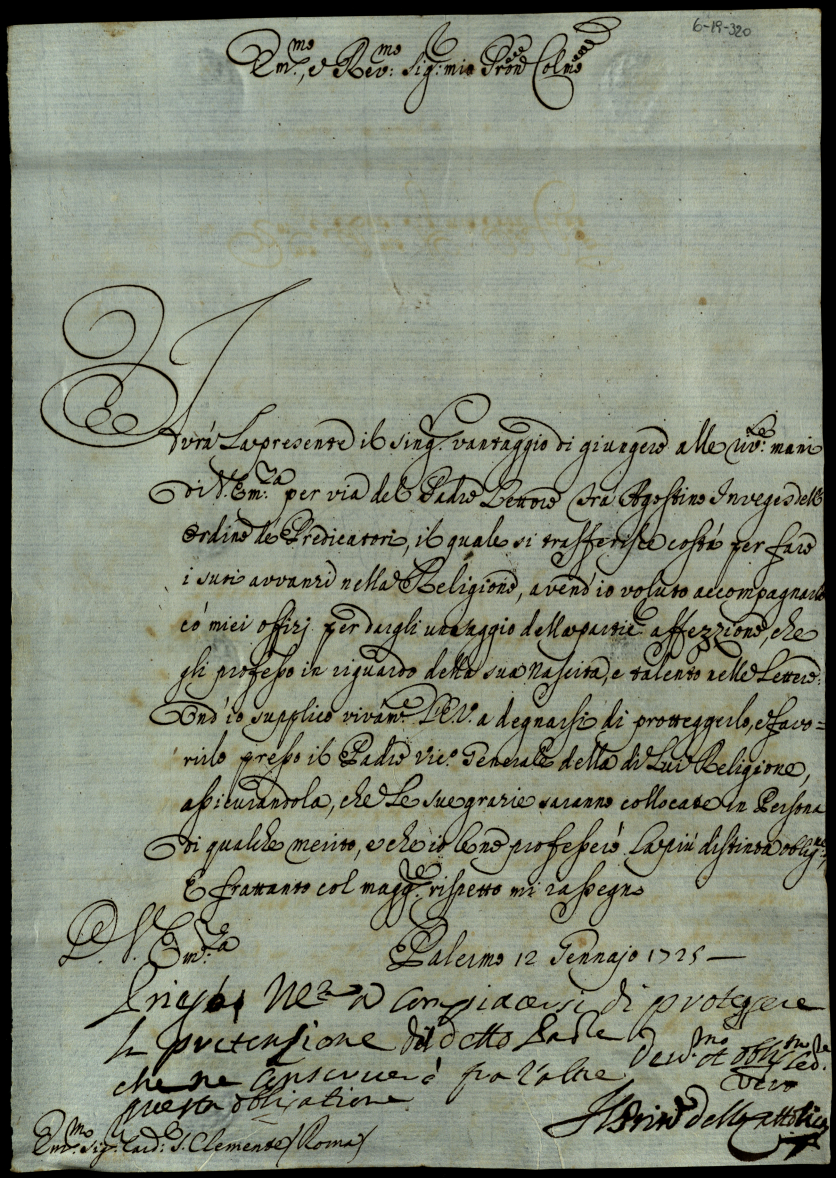 6-19-320
Em.mo, e Rev.mo Sig.r mio Pron.e Colmo
Avrà La presente il sing.r vantaggio di giungere alle riv.e mani
di V. Em.za per via del Padre Lettore Fra Agostino Inveges dell
Ordine de Predicatori, il quale si trasferisce costà per fare
i suoi avvanzi nella Religione, avend'io voluto accompagnarlo
co' miei offizj per dargli un saggio della partic.e affezzione, che
gli professo in riguardo della sua Nascita, e talento nelle Lettere:
Ond'io supplico vivam.te V.E. a degnarsi di proteggerlo, e favo=
rirlo presso il Padre Vic.o Generale della di Lui Religione,
assicurandola, che Le sue grazie saranno collocate in Persona
di qualche merito, e che io Le ne professerò la più distinta oblig.ne,
E frattanto col magg.re rispetto mi rassegno
D. V. Em.za
Palermo 12 Gennajo 1725 —
Priego V.E. a compiacersi di proteggere
la pretensione del detto Padre
che ne conserverò fra l'altre
questa obligatione
Dev.mo et obblig.mo Ser.re
vero
Il Prin.e della Cattolica
Em.mo Sig.r Card. S. Clemente (Roma)